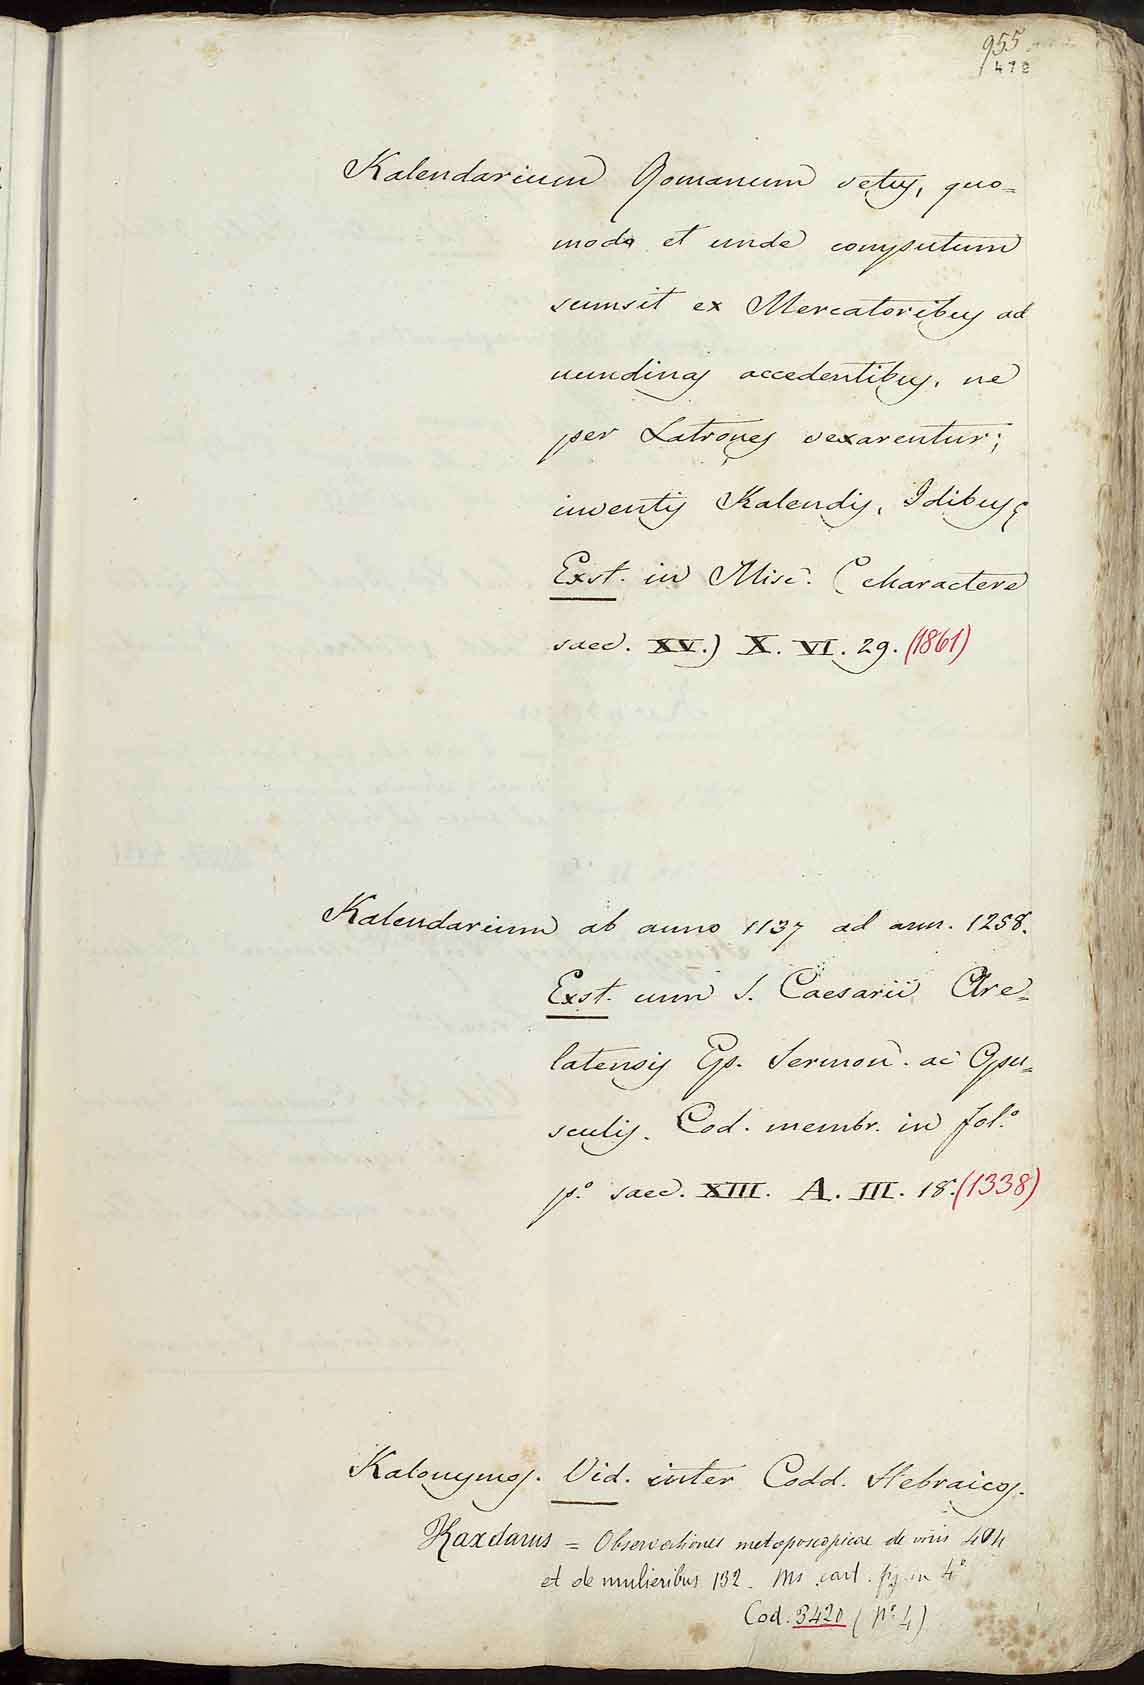 955
478
Kalendarium Romanum vetus, quo=
modo et unde computum
sumsit ex Mercatoribus ad
nundinas accedentibus, ne
per Latrones vexarentur;
inventis Kalendis, Idibus
Exst. in Misc. (charactere
saec. XV.) X. VI. 29. (1861)
Kalendarium ab anno 1137 ad ann. 1258.
Exst. cum S. Caesarii Are=
latensis Ep. Sermon. ac Opu=
sculis. Cod. membr. in fol.º
p.º saec. XIII. A. III. 18. (1338)
Kalonymos. Vid. inter Codd. Hebraicos.
Kaxdarus = Observationes metoposcopicae de viris 404
et de mulieribus 132. Ms. cart. fig. in 4º
Cod. 3420 (nº 4)